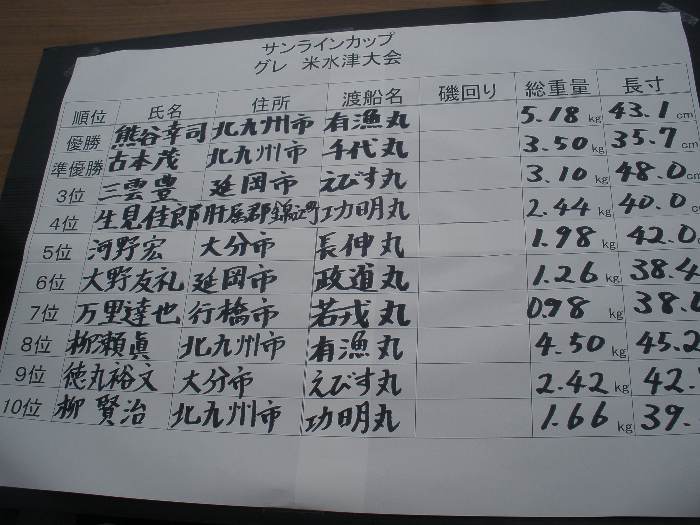 サンラインカップ
グレ 米水津大会
順位 氏名 住所 渡船名 磯回り 総重量 長寸
優勝 熊谷幸司 北九州市 有漁丸 5.18 kg 43.1 cm
準優勝 古本茂 北九州市 千代丸 3.50 kg 35.7 cm
3位 三雲豊 延岡市 えびす丸 3.10 kg 48.0 cm
4位 生見佳郎 肝属郡錦江町 功明丸 2.44 kg 40.0 cm
5位 河野宏 大分市 長伸丸 1.98 kg 42.0
6位 大野友礼 延岡市 政道丸 1.26 kg 38.4
7位 万里達也 行橋市 若戎丸 0.98 kg 38.
8位 柳瀬眞 北九州市 有漁丸 4.50 kg 45.2
9位 徳丸裕文 大分市 えびす丸 2.42 kg 42.
10位 柳 賢治 北九州市 功明丸 1.66 kg 39.